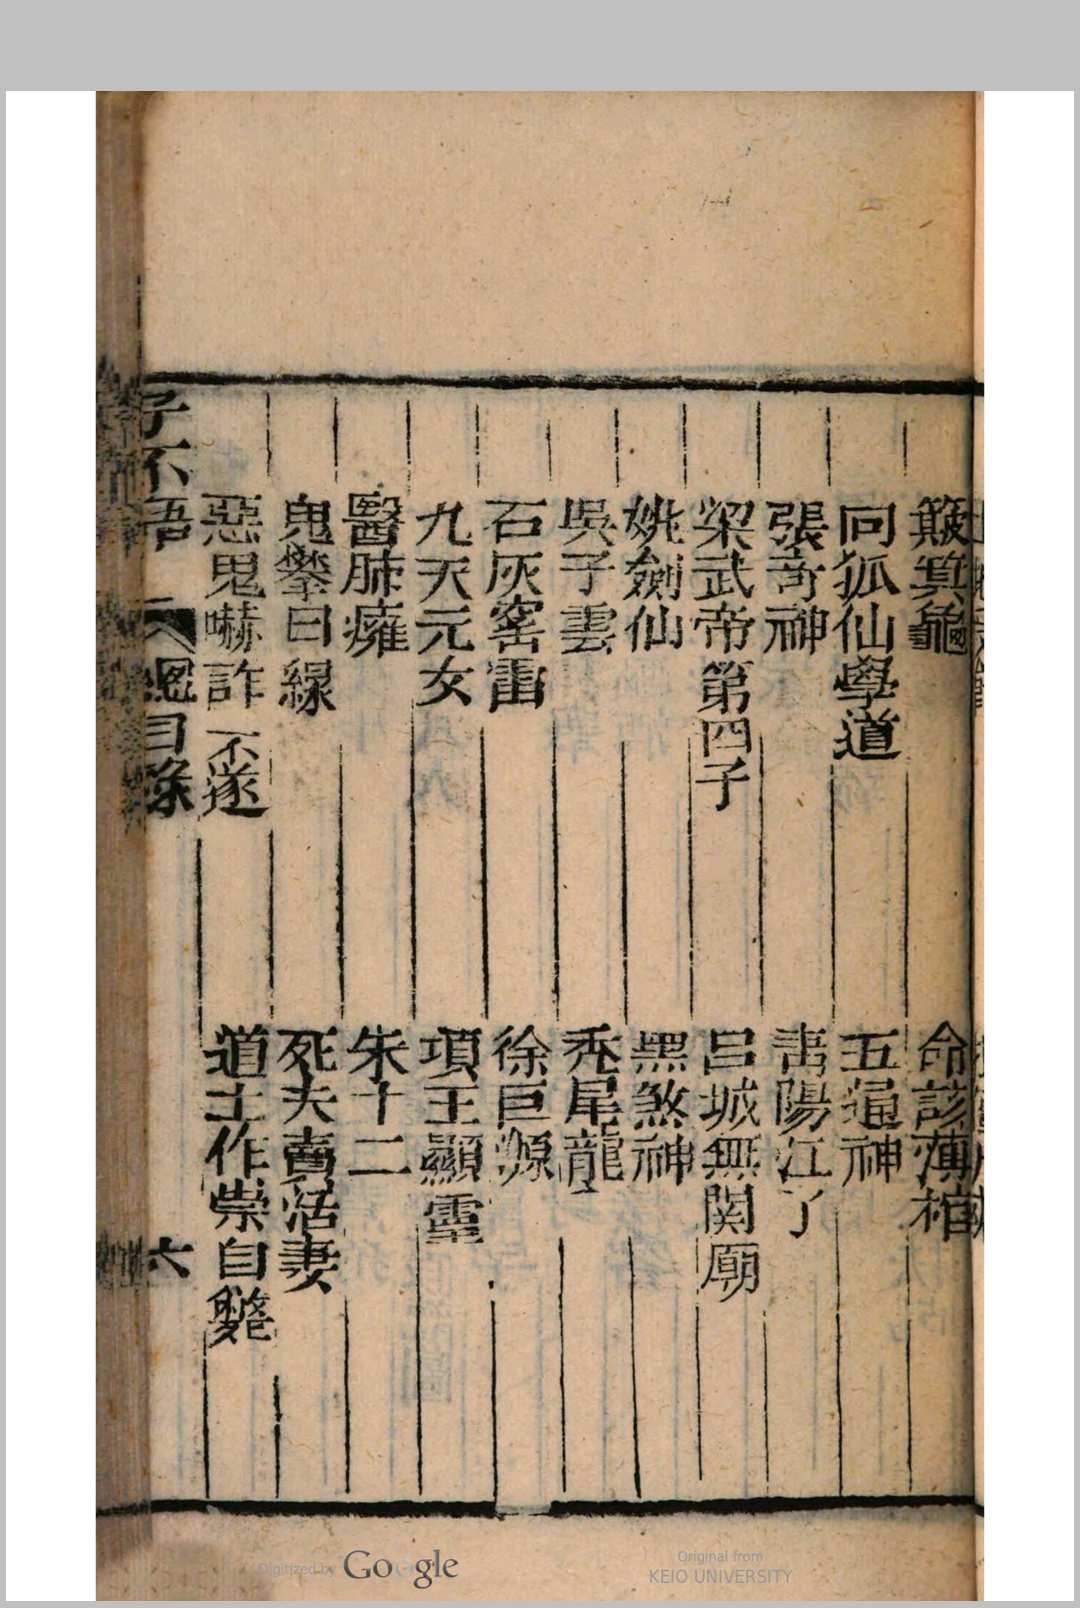 簸箕龜
命該薄棺
同狐仙學道
五通神
張奇神
青陽江丫
梁武帝第四子
呂城無関廟
姚劍仙
黑煞神
吳子雲
禿尾龍
石灰窰雷
徐巨源
九天元女
項王顯靈
醫肺癰
朱十二
鬼攀日線
死夫賣活妻
惡鬼嚇詐不遂
道士作祟自斃
子不語
總目錄
六
Digitized by Google
Original from
KEIO UNIVERSITY